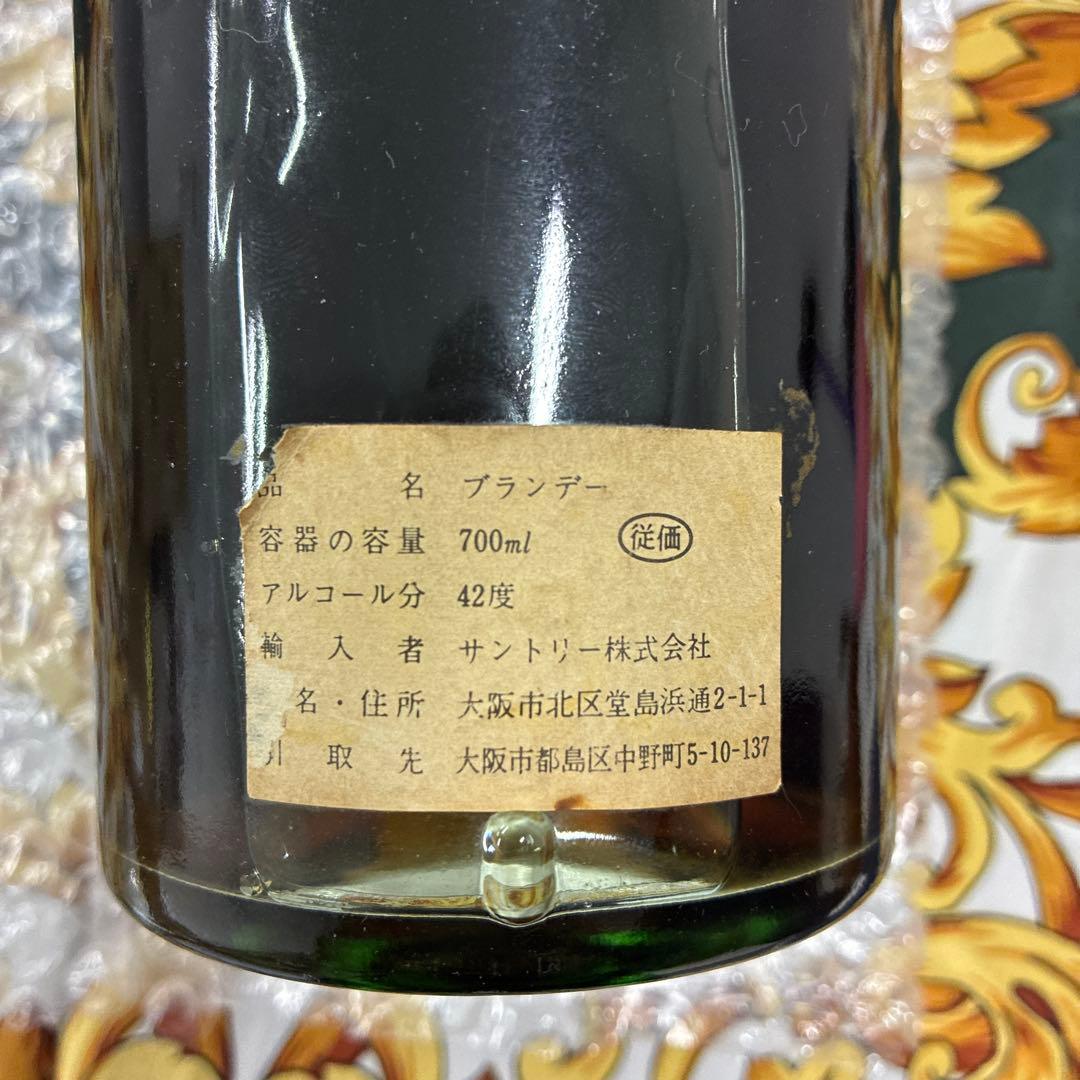 品名 ブランデー
容器の容量 700ml 従価
アルコール分 42度
輸入者 サントリー株式会社
名・住所 大阪市北区堂島浜通2-1-1
引取先 大阪市都島区中野町5-10-137